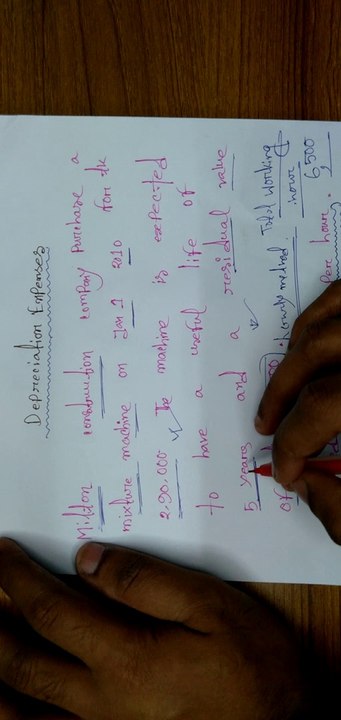 Depreciation Expenses
Milton construction company purchase a
mixture machine on Jan 1 2010 for tk
2.90.000 The machine is expected
to have a useful life of
5 years and a residual value
of hourly method. Total working
hour
Per hour. 6,500